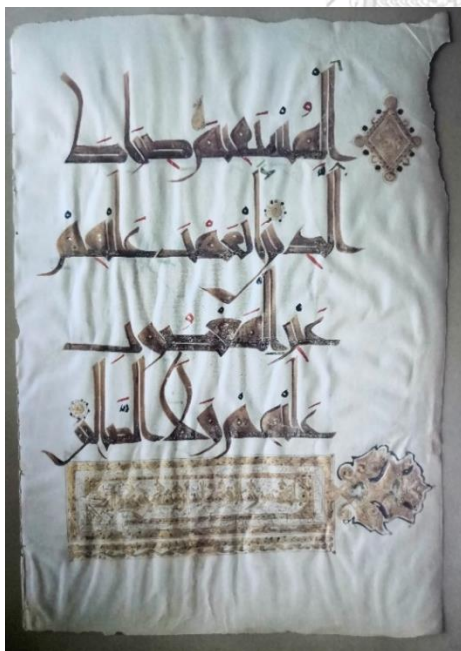 المستقيم صراط
الذين أنعمت عليهم
غير المغضوب
عليهم ولا الضالين